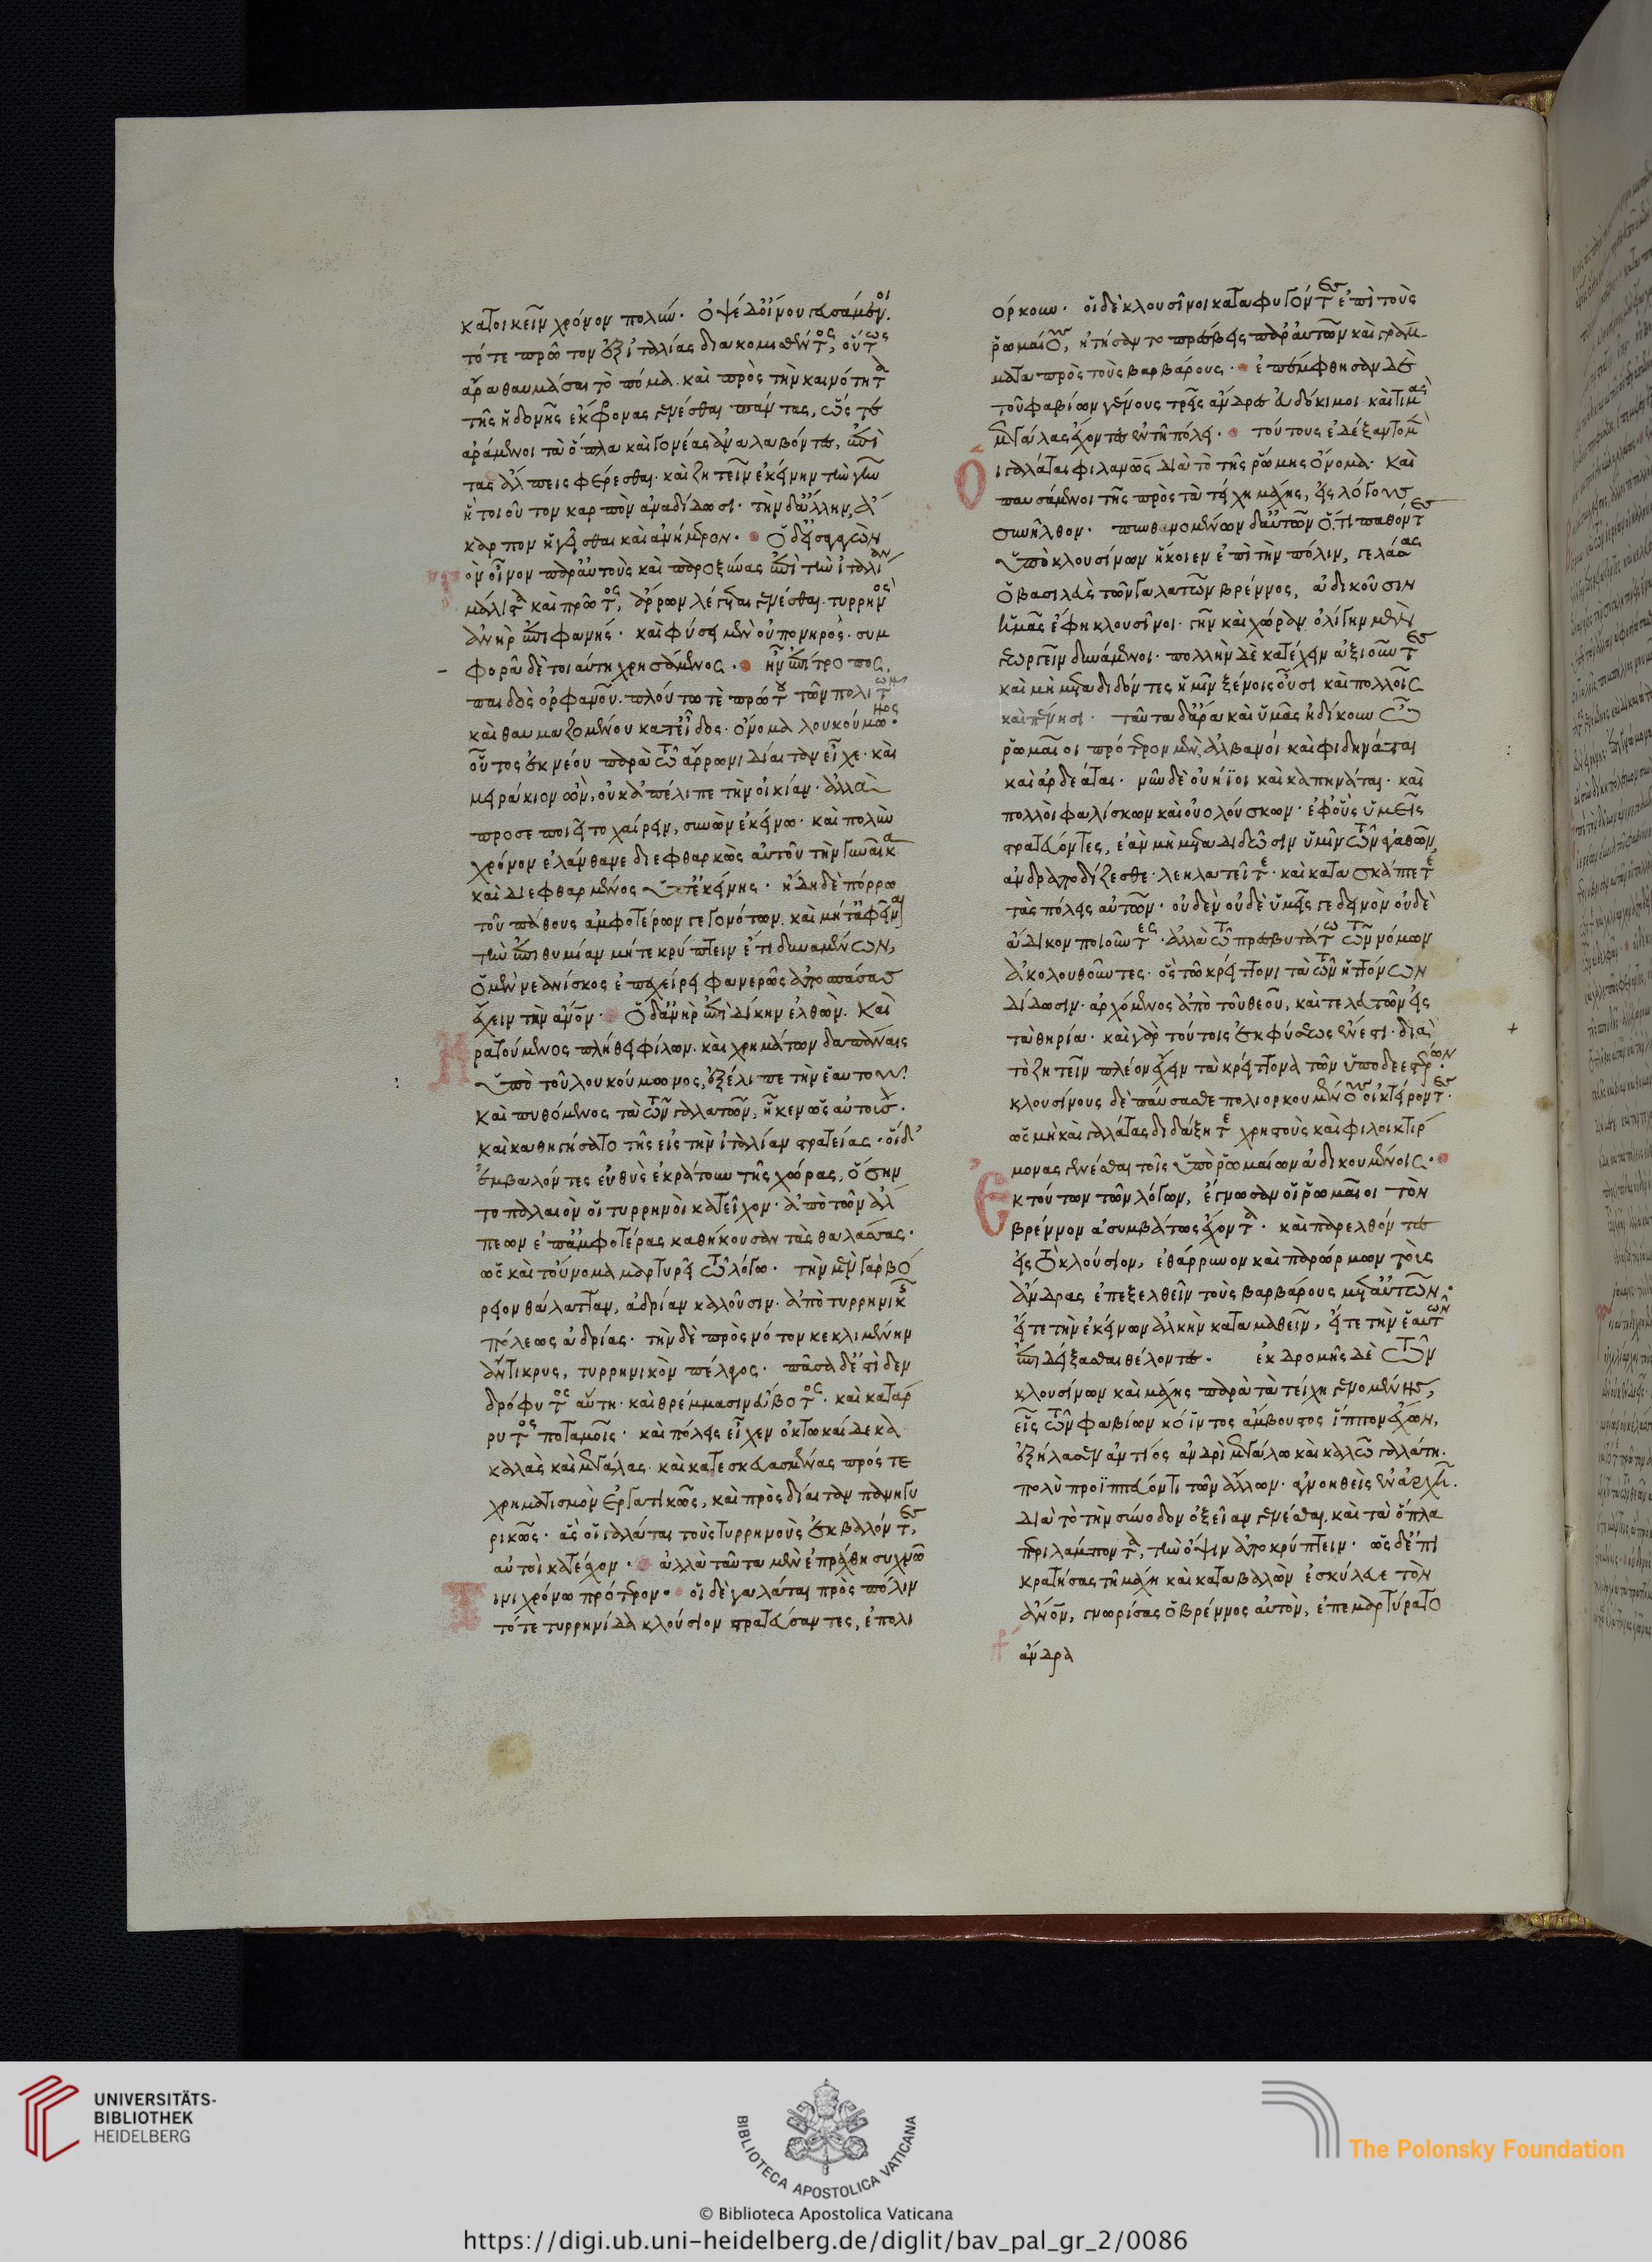 κατοικεῖν χρόνον πολύν· ὀψὲ δ' οἴνου γευσάμενοι
τότε πρῶτον ἐξ ἰταλίας διακομισθέντος, οὕτως
ἄρα θαυμάσαι τὸ πόμα· καὶ πρὸς τὴν καινότητα
τῆς ἡδονῆς ἔκφρονας γενέσθαι πάντας, ὥστε
ἀράμενοι τὰ ὅπλα καὶ γονέας ἀναλαβόντες, ἐπὶ
τὰς ἄλπεις φέρεσθαι· καὶ ζητεῖν ἐκείνην τὴν γῆν
ἣ τοιοῦτον καρπὸν ἀναδίδωσι· τὴν δ' ἄλλην, ἄ
καρπον ἡγεῖσθαι καὶ ἀνήμερον· ὁ δ' εἰσαγαγὼν
τὸν οἶνον παρ' αὐτοὺς καὶ παροξύνας ἐπὶ τὴν ἰταλίαν
μάλιστα καὶ πρῶτος, ἄρρων λέγεται γενέσθαι τυρρηνὸς
ἀνὴρ ἐπιφανής· καὶ φύσει μὲν οὐ πονηρός· συμ
φορᾷ δὲ τοιαύτῃ χρησάμενος· ἦν ἐπίτροπος
παιδὸς ὀρφανοῦ· πλούτῳ τε πρώτου τῶν πολιτῶν
καὶ θαυμαζομένου κατ' εἶδος· ὄνομα λουκούμωνος·
οὗτος ἐκ νέου παρὰ τῷ ἄρρωνι δίαιταν εἶχε· καὶ
μειράκιον ὢν, οὐκ ἀπέλιπε τὴν οἰκίαν· ἀλλὰ
προσεποιεῖτο χαίρειν, συνὼν ἐκείνῳ· καὶ πολὺν
χρόνον ἐλάνθανε διεφθαρκὼς αὐτοῦ τὴν γυναῖκα
καὶ διεφθαρμένος ὑπ' ἐκείνης· ἤδη δὲ πόρρω
τοῦ πάθους ἀμφοτέρων γεγονότων, καὶ μήτ' ἀφεῖναι
τὴν ἐπιθυμίαν μήτε κρύπτειν ἔτι δυναμένων,
ὁ μὲν νεανίσκος ἐπεχείρει φανερῶς ἀποσπάσας
ἔχειν τὴν ἄνθρωπον· ὁ δ' ἀνὴρ ἐπὶ δίκην ἐλθὼν· καὶ
κρατούμενος πλήθει φίλων· καὶ χρημάτων δαπάναις
ὑπὸ τοῦ λουκούμωνος, ἐξέλιπε τὴν ἑαυτοῦ·
καὶ πυθόμενος τὰ τῶν γαλατῶν, ἧκεν ὡς αὐτούς·
καὶ καθηγήσατο τῆς εἰς τὴν ἰταλίαν στρατείας· οἱ δ'
ἐμβαλόντες εὐθὺς ἐκράτουν τῆς χώρας, ὅσην
τὸ παλαιὸν οἱ τυρρηνοὶ κατεῖχον· ἀπὸ τῶν ἄλ
πεων ἐπ' ἀμφοτέρας καθήκουσαν τὰς θαλάσσας·
ὡς καὶ τοὔνομα μαρτυρεῖ τῷ λόγῳ· τὴν μὲν γὰρ βό
ρειον θάλατταν, ἀδρίαν καλοῦσιν· ἀπὸ τυρρηνικῆς
πόλεως ἀδρίας· τὴν δὲ πρὸς νότον κεκλιμένην
ἄντικρυς, τυρρηνικὸν πέλαγος· πᾶσα δ' ἐστὶ δεν
δρόφυτος αὕτη· καὶ θρέμμασιν εὔβοτος· καὶ κατάρ
ρυτος ποταμοῖς· καὶ πόλεις εἶχεν ὀκτωκαίδεκα
καλὰς καὶ μεγάλας· καὶ κατεσκευασμένας πρός τε
χρηματισμὸν ἐργατικῶς, καὶ πρὸς δίαιταν πανηγυ
ρικῶς· ἃς οἱ γαλάται τοὺς τυρρηνοὺς ἐκβαλόντες,
αὐτοὶ κατέσχον· ἀλλὰ ταῦτα μὲν ἐπράχθη συχνῷ
τινι χρόνῳ πρότερον· οἱ δὲ γαλάται πρὸς πόλιν
τότε τυρρηνίδα κλούσιον στρατεύσαντες, ἐπολι
όρκουν· οἱ δὲ κλουσῖνοι καταφυγόντες ἐπὶ τοὺς
ῥωμαίους, ᾐτήσαντο πρέσβεις παρ' αὐτῶν καὶ γράμ
ματα πρὸς τοὺς βαρβάρους· ἐπέμφθησαν δὲ
τοῦ φαβίων γένους τρεῖς ἄνδρες εὐδόκιμοι καὶ τιμὰς
μεγάλας ἔχοντες ἐν τῇ πόλει· τούτους ἐδέξαντο μὲν
οἱ γαλάται φιλανθρώπως διὰ τὸ τῆς ῥώμης ὄνομα· καὶ
παυσάμενοι τῆς πρὸς τὰ τείχη μάχης, εἰς λόγους
συνῆλθον· πυνθανομένων δ' αὐτῶν ὅ,τι παθόντες
ὑπὸ κλουσίνων ἥκοιεν ἐπὶ τὴν πόλιν, γελάσας
ὁ βασιλεὺς τῶν γαλατῶν βρέννος, ἀδικοῦσιν
ἡμᾶς ἔφη κλουσῖνοι· γῆν καὶ χώραν ὀλίγην μὲν
γεωργεῖν δυνάμενοι· πολλὴν δὲ κατέχειν ἀξιοῦντες
καὶ μὴ μεταδιδόντες ἡμῖν ξένοις οὖσι καὶ πολλοῖς
καὶ πένησι· ταῦτα δ' ἄρα καὶ ὑμᾶς ἠδίκουν ὦ
ῥωμαῖοι πρότερον μὲν ἀλβανοί καὶ φιδηνάται
καὶ ἀρδεάται· νῦν δὲ οὐήϊοι καὶ καπηνάται· καὶ
πολλοὶ φαλίσκων καὶ οὐολούσκων· ἐφ' οὓς ὑμεῖς
στρατεύοντες, ἐὰν μὴ μεταδιδῶσιν ὑμῖν τῶν ἀγαθῶν,
ἀνδραποδίζεσθε· λεηλατεῖτε· καὶ κατασκάπτετε
τὰς πόλεις αὐτῶν· οὐδὲν οὐδὲ ὑμεῖς γε δεινὸν οὐδὲ
ἄδικον ποιοῦντες· ἀλλὰ τῷ πρεσβυτάτῳ τῶν νόμων
ἀκολουθοῦντες· ὃς τῷ κρείττονι τὰ τῶν ἡττόνων
δίδωσιν· ἀρχόμενος ἀπὸ τοῦ θεοῦ, καὶ τελευτῶν εἰς
τὰ θηρία· καὶ γὰρ τούτοις ἐκ φύσεως ἔνεστι· διὰ
τὸ ζητεῖν πλέον ἔχειν τὰ κρείττονα τῶν ὑποδεεστέρων·
κλουσίνους δὲ παύσασθε πολιορκουμένους οἰκτείροντες·
ὡς μὴ καὶ γαλάτας διδάξητε χρηστοὺς καὶ φιλοικτίρ
μονας γενέσθαι τοῖς ὑπὸ ῥωμαίων ἀδικουμένοις·
ἐκ τούτων τῶν λόγων, ἔγνωσαν οἱ ῥωμαῖοι τὸν
βρέννον ἀσυμβάτως ἔχοντα· καὶ παρελθόντες
εἰς τὸ κλούσιον, ἐθάρρυνον καὶ παρώρμων τοὺς
ἄνδρας ἐπεξελθεῖν τοὺς βαρβάρους μετ' αὐτῶν·
εἴτε τὴν ἐκείνων ἀλκὴν καταμαθεῖν, εἴτε τὴν ἑαυτῶν
ἐπιδείξασθαι θέλοντες· ἐκδρομῆς δὲ τῶν
κλουσίνων καὶ μάχης παρὰ τὰ τείχη γενομένης,
εἷς τῶν φαβίων κόϊντος ἄμβουστος ἵππον ἔχων,
ἐξήλασεν ἀντίος ἀνδρὶ μεγάλῳ καὶ καλῷ γαλάτῃ·
πολὺ προϊππεύοντι τῶν ἄλλων· ἀγνοηθεὶς ἐν ἀρχῇ·
διὰ τὸ τὴν σύνοδον ὀξεῖαν γενέσθαι, καὶ τὰ ὅπλα
περιλάμποντα, τὴν ὄψιν ἀποκρύπτειν· ὡς δ' ἐπι
κρατήσας τῇ μάχῃ καὶ καταβαλὼν ἐσκύλευε τὸν
ἄνθρωπον, γνωρίσας ὁ βρέννος αὐτὸν, ἐπεμαρτύρατο
ἄνδρα
UNIVERSITÄTS-
BIBLIOTHEK
HEIDELBERG
BIBLIOTECA APOSTOLICA VATICANA
The Polonsky Foundation
© Biblioteca Apostolica Vaticana
https://digi.ub.uni-heidelberg.de/diglit/bav_pal_gr_2/0086